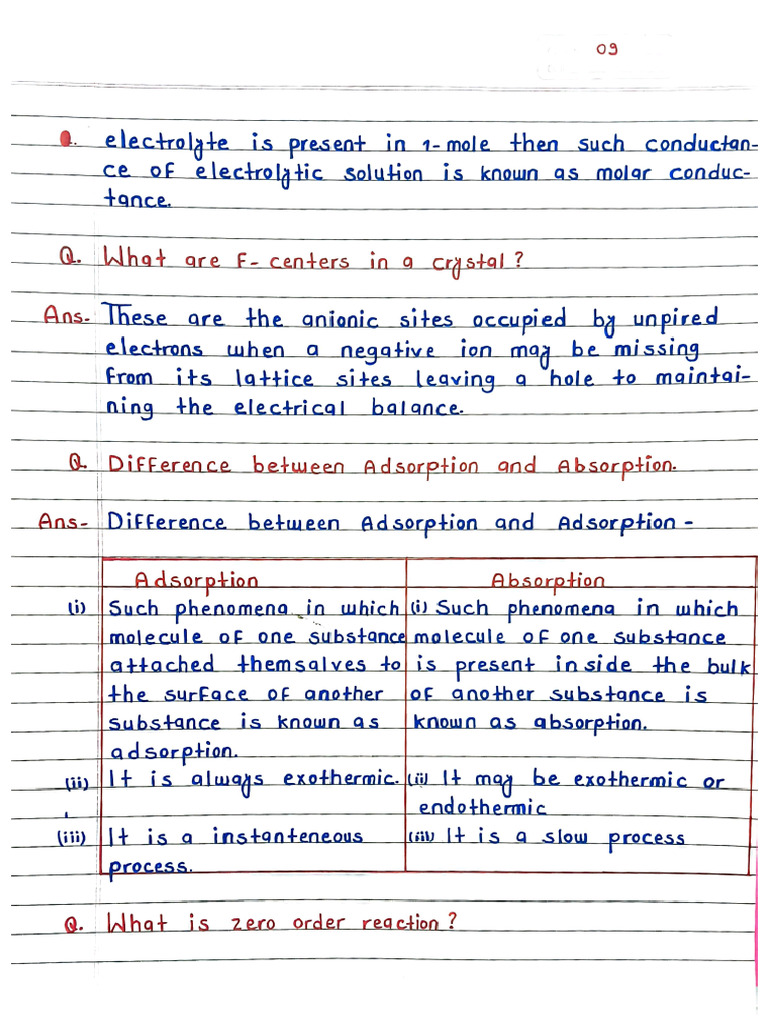 09
Q. electrolyte is present in 1-mole then such conductan-
ce of electrolytic solution is known as molar conduc-
tance.
Q. What are F-centers in a crystal?
Ans- These are the anionic sites occupied by unpired
electrons when a negative ion may be missing
from its lattice sites leaving a hole to maintai-
ning the electrical balance.
Q. Difference between Adsorption and Absorption.
Ans- Difference between Adsorption and Adsorption -
Adsorption
(i) Such phenomena in which
molecule of one substance
attached themsalves to
the surface of another
substance is known as
adsorption.
(ii) It is always exothermic.
(iii) It is a instanteneous
process.
Absorption
(i) Such phenomena in which
molecule of one substance
is present inside the bulk
of another substance is
known as absorption.
(ii) It may be exothermic or
endothermic
(iii) It is a slow process
Q. What is zero order reaction?